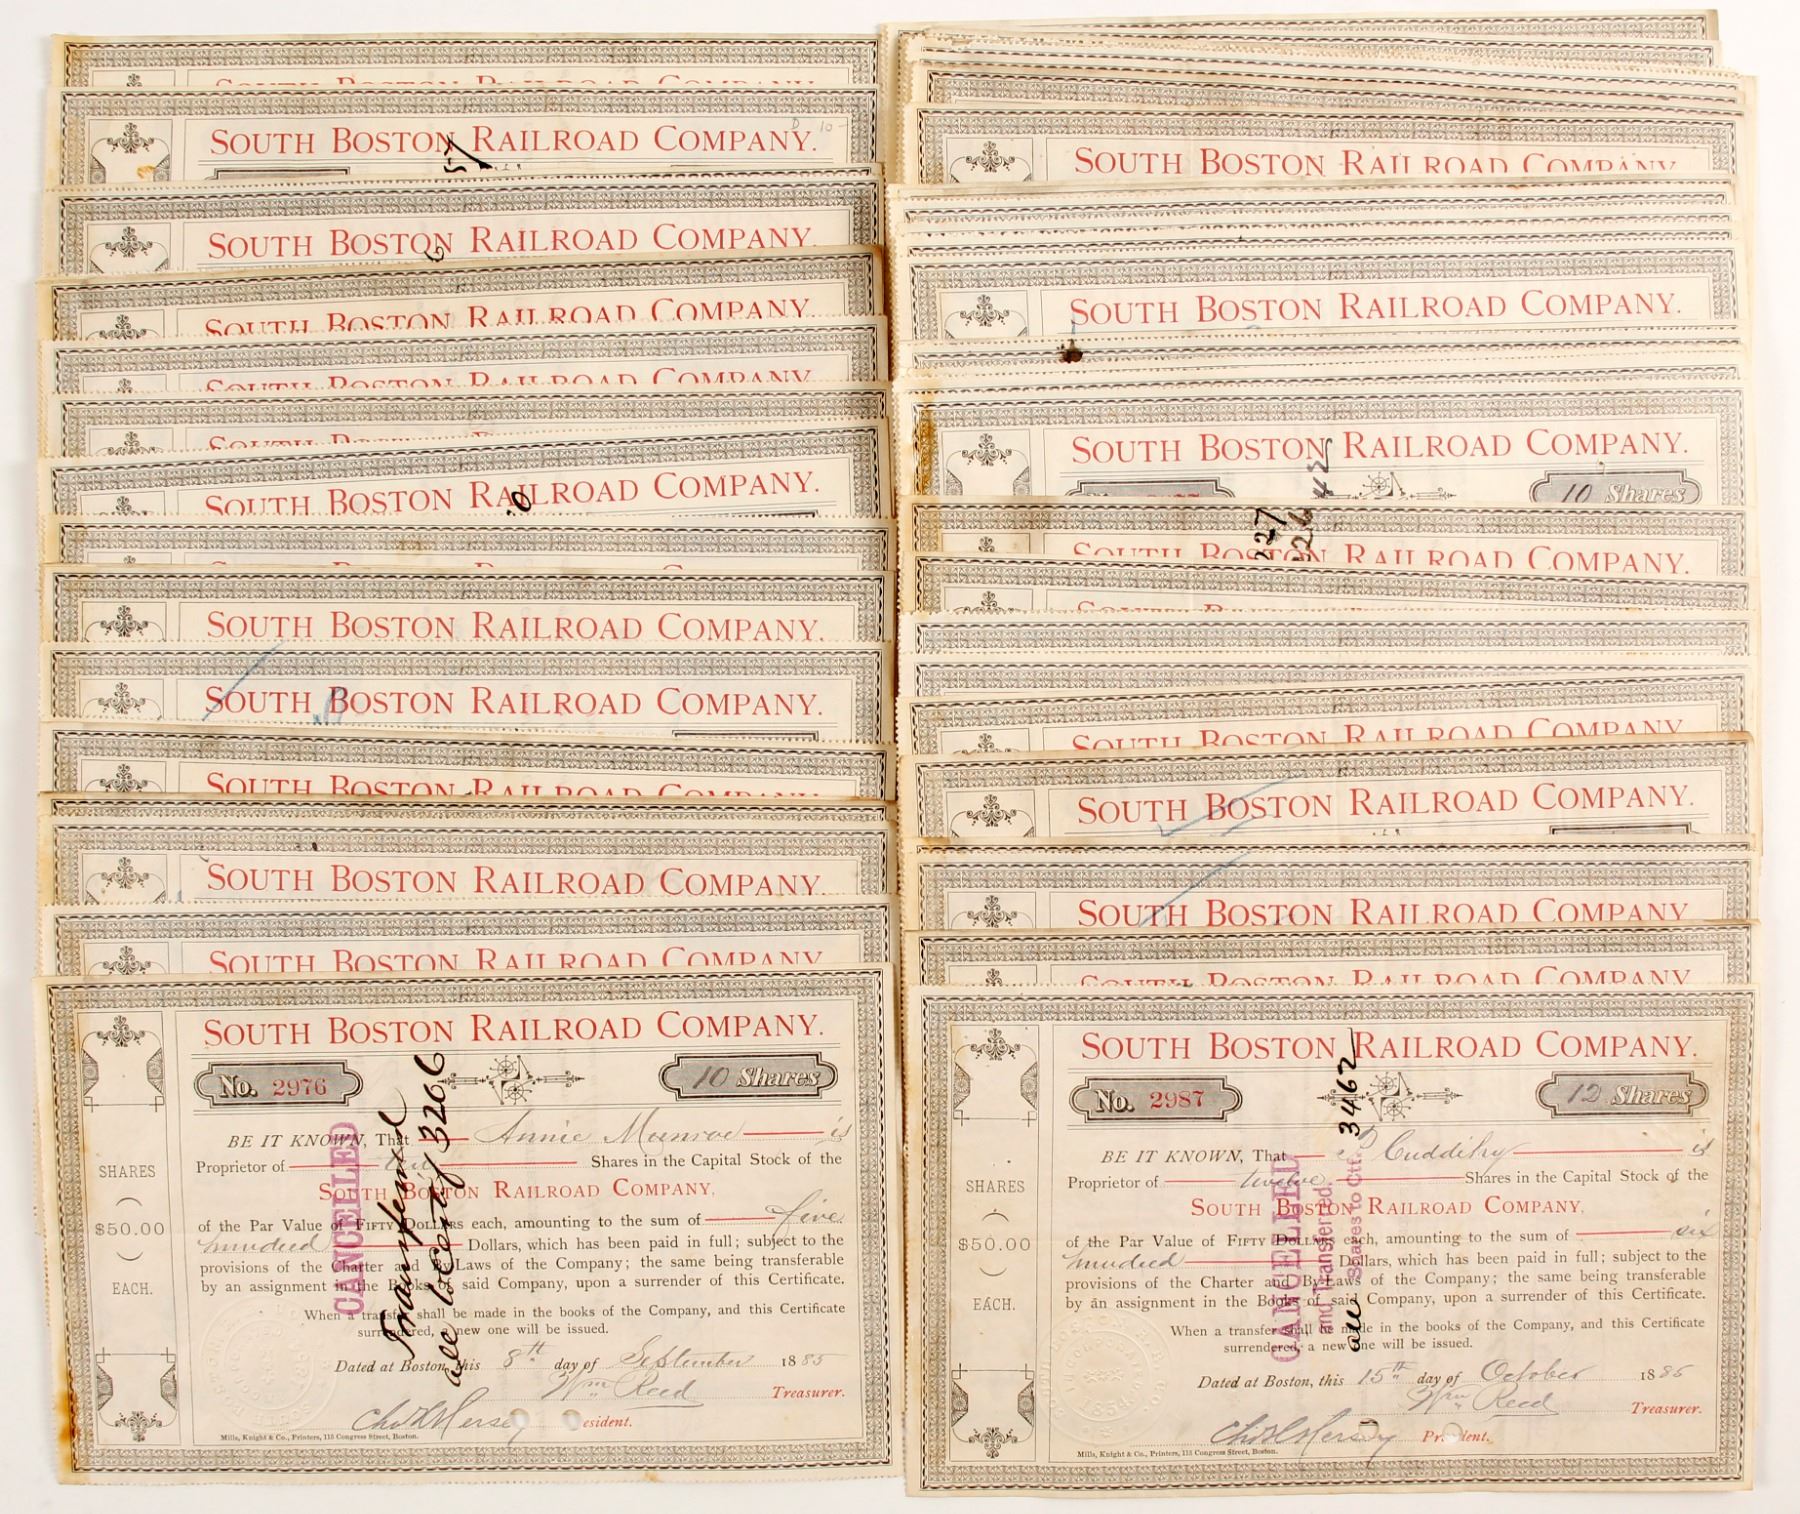 SOUTH BOSTON RAILROAD COMPANY.
SOUTH BOSTON RAILROAD COMPANY.
D 10-
57
SOUTH BOSTON RAILROAD COMPANY.
6
SOUTH BOSTON RAILROAD COMPANY.
SOUTH BOSTON RAILROAD COMPANY
SOUTH
SOUTH BOSTON RAILROAD COMPANY.
SOUTH BOSTON RAILROAD COMPANY.
SOUTH BOSTON RAILROAD COMPANY.
SOUTH BOSTON RAILROAD COMPANY
SOUTH BOSTON RAILROAD COMPANY.
SOUTH BOSTON RAILROAD COMPANY
SOUTH BOSTON RAILROAD COMPANY.
No. 2976
10 Shares
BE IT KNOWN, That Annie Munroe is
Proprietor of ten Shares in the Capital Stock of the
SOUTH BOSTON RAILROAD COMPANY,
of the Par Value of FIFTY DOLLARS each, amounting to the sum of five
hundred Dollars, which has been paid in full; subject to the
provisions of the Charter and By-Laws of the Company; the same being transferable
by an assignment in the Books of said Company, upon a surrender of this Certificate.
When a transfer shall be made in the books of the Company, and this Certificate
surrendered, a new one will be issued.
Dated at Boston, this 8th day of September 1885
Wm Reed Treasurer.
Chas H Hersey esident.
Mills, Knight & Co., Printers, 115 Congress Street, Boston.
SHARES
$50.00
EACH.
CANCELLED
Transferred
all to Cert of 3206
SOUTH BOSTON RAILROAD COMPANY
SOUTH BOSTON RAILROAD COMPANY.
SOUTH BOSTON RAILROAD COMPANY.
10 Shares
42
SOUTH BOSTON RAILROAD COMPANY.
227
226
SOUTH BOSTON RAILROAD COMPANY
SOUTH BOSTON RAILROAD COMPANY.
SOUTH BOSTON RAILROAD COMPANY
SOUTH BOSTON RAILROAD COMPANY
SOUTH BOSTON RAILROAD COMPANY.
No. 2987
12 Shares
BE IT KNOWN, That Cuddihy is
Proprietor of twelve Shares in the Capital Stock of the
SOUTH BOSTON RAILROAD COMPANY,
of the Par Value of FIFTY DOLLARS each, amounting to the sum of six
hundred Dollars, which has been paid in full; subject to the
provisions of the Charter and By-Laws of the Company; the same being transferable
by an assignment in the Books of said Company, upon a surrender of this Certificate.
When a transfer shall be made in the books of the Company, and this Certificate
surrendered, a new one will be issued.
Dated at Boston, this 15th day of October 1885
Wm Reed Treasurer.
Chas H Hersey Pr dent.
Mills, Knight & Co., Printers, 115 Congress Street, Boston.
SHARES
$50.00
EACH.
CANCELLED
and Transferred.
all Shares to Ctf. 3462